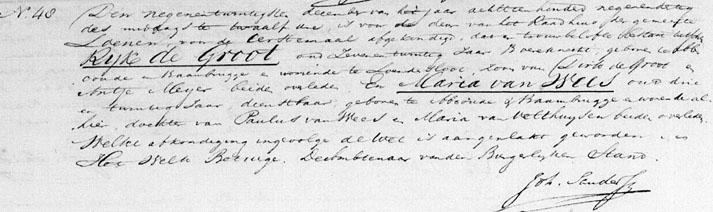 N. 48 Den negenentwintigsten december van het jaar achttienhonderd negenendertig
des middags te twaalf ure, is voor de deur van het Raadhuis der gemeente
Loenen, voor de Eerstemaal afgekondigd, dat er trouwbelofte bestaat tusschen
Rijk de Groot oud zevenentwintig Jaar Boereknecht, geboren te Ab
coude en Baambrugge en wonende te Loenen zoon van Dirk de Groot en
Antje Meyer beiden overleden En Maria van Wees oud drie
en twintig Jaar, dienstbaar, geboren te Abcoude & Baambrugge en wonende al
hier, dochter van Paulus van Wees en Maria van Velthuysen beiden overleden.
Welke afkondiging ingevolge de Wet is aangeplakt geworden
Hoc Welk Betuige. De Ambtenaar van den Burgerlijken Stand.
Joh. Sanders